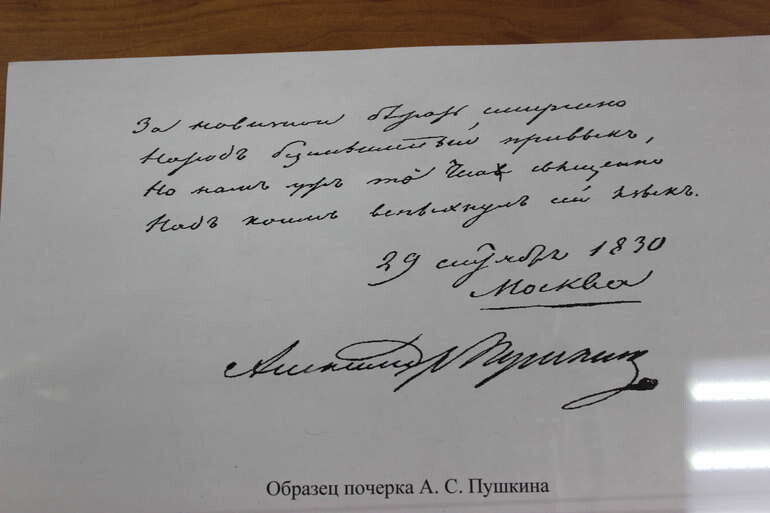 За новизной бѣжать смиренно
Народъ безсмысленный привыкъ,
Но намъ ужъ то Чело священно
Надъ коимъ вспыхнулъ сей языкъ.
29 сентября 1830
Москва
Александр Пушкин
Образец почерка А. С. Пушкина